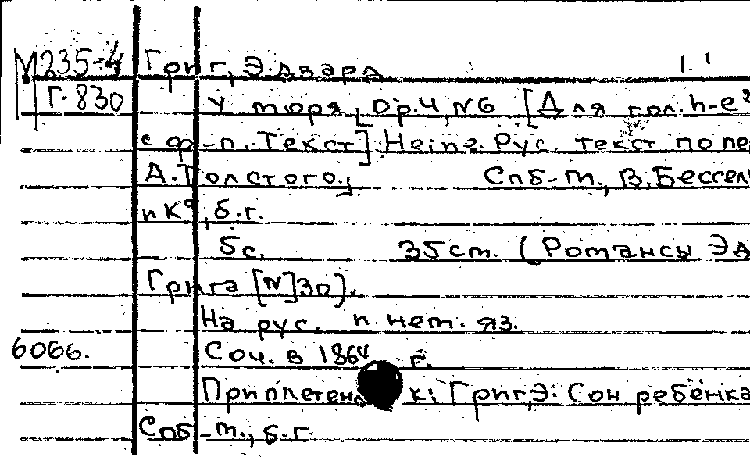 М235-4 Григ, Эдвард
Г.830 У моря, Ор.4, №6 [Для гол.
с ф-п. Текст] Heine. Рус. текст по пе
А.Толстого, Спб-М., В.Бессел
и К°, б.г.
5с. 35см. (Романсы Эд
Грига [№]30).
На рус. и нем. яз.
6066. Соч. в 1864 г.
Приплетено к: Григ, Э. Сон ребенка
Спб-М., б.г.